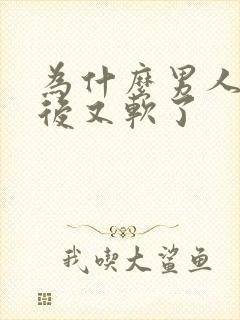 為什麼男人
後又軟了
我喫大鯊鱼